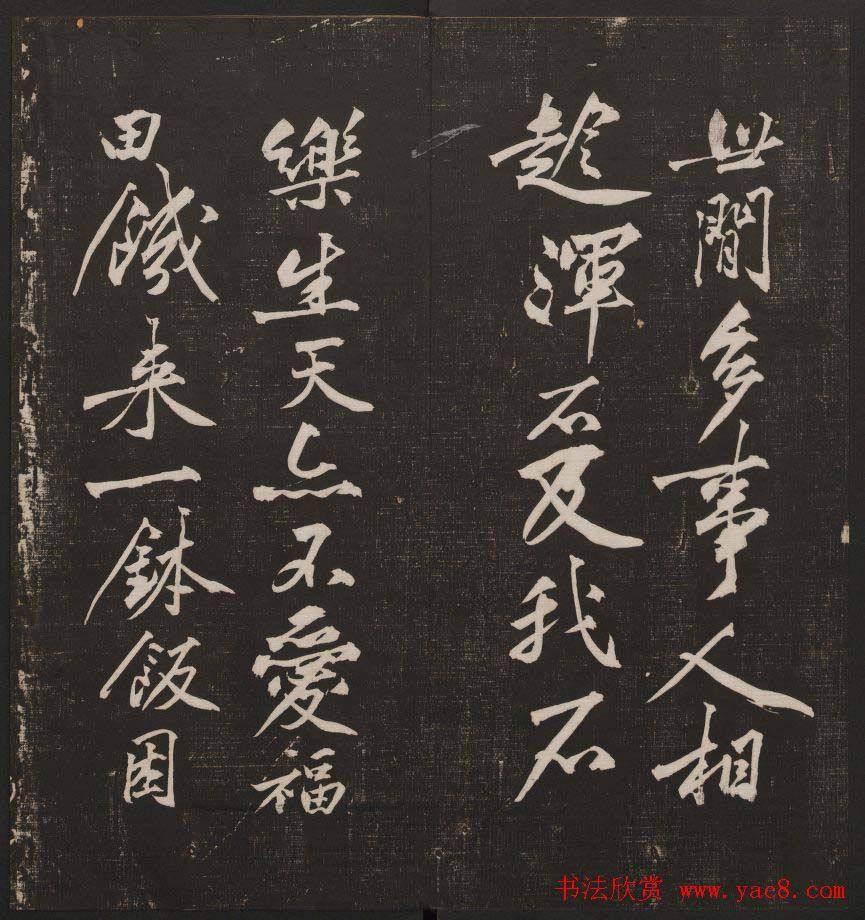 世間多事人相
趁渾不及我不
樂生天亦不愛福
田饑来一鉢飯困
书法欣赏 www.yac8.com